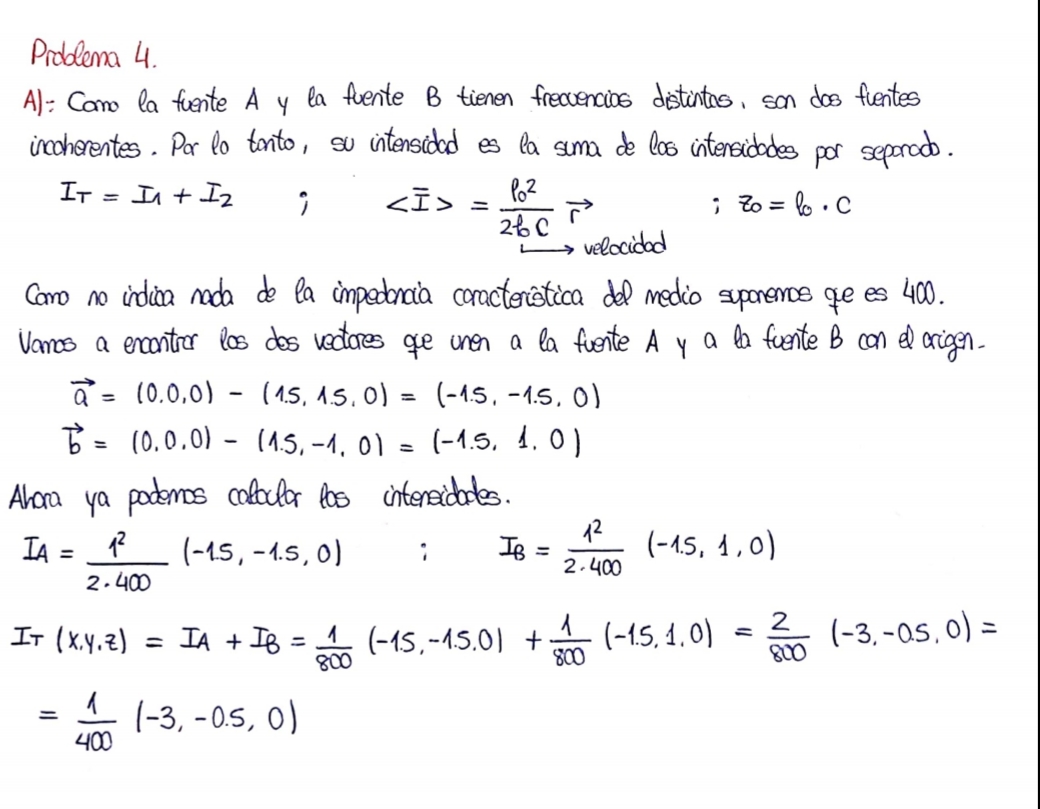 Problema 4.
A): Como la fuente A y la fuente B tienen frecuencias distintas, son dos fuentes
incoherentes. Por lo tanto, su intensidad es la suma de las intensidades por separado.
I_T = I_1 + I_2 ; <Ī> = ρ_0² / 2ρ_0 C r⃗ ; z_0 = ρ_0 · C
→ velocidad
Como no indica nada de la impedancia característica del medio suponemos qe es 400.
Vamos a encontrar los dos vectores qe unen a la fuente A y a la fuente B con el origen.
a⃗ = (0,0,0) - (1.5, 1.5, 0) = (-1.5, -1.5, 0)
b⃗ = (0,0,0) - (1.5, -1, 0) = (-1.5, 1, 0)
Ahora ya podemos calcular las intensidades.
I_A = 1² / 2·400 (-1.5, -1.5, 0) ; I_B = 1² / 2·400 (-1.5, 1, 0)
I_T (x,y,z) = I_A + I_B = 1/800 (-1.5, -1.5, 0) + 1/800 (-1.5, 1, 0) = 2/800 (-3, -0.5, 0) =
= 1/400 (-3, -0.5, 0)